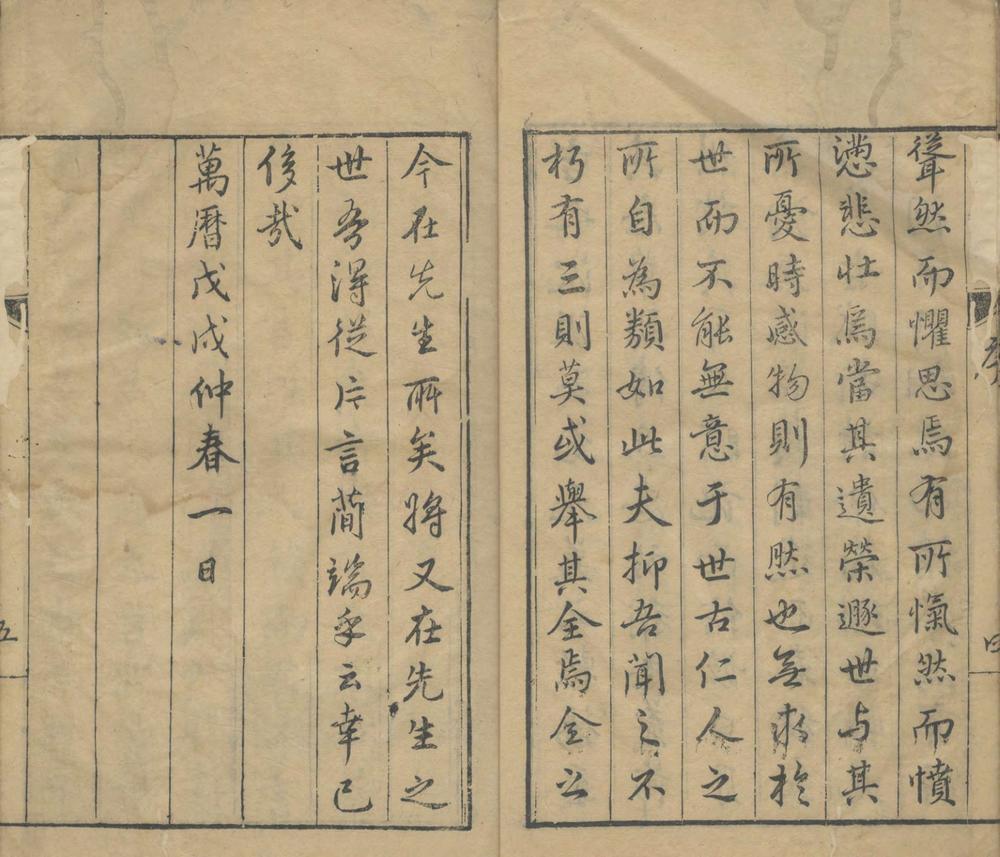 聳然而懼思焉有所愾然而憤
懣悲壯焉當其遺榮遯世与其
所憂時感物則有然也無求於
世而不能無意于世古仁人之
所自為類如此夫抑吾聞之不
朽有三則莫或舉其全焉全公
今在先生所矣將又在先生之
世吾得從片言蕳端乎云幸已
侈哉
萬曆戊戌仲春一日
序
五